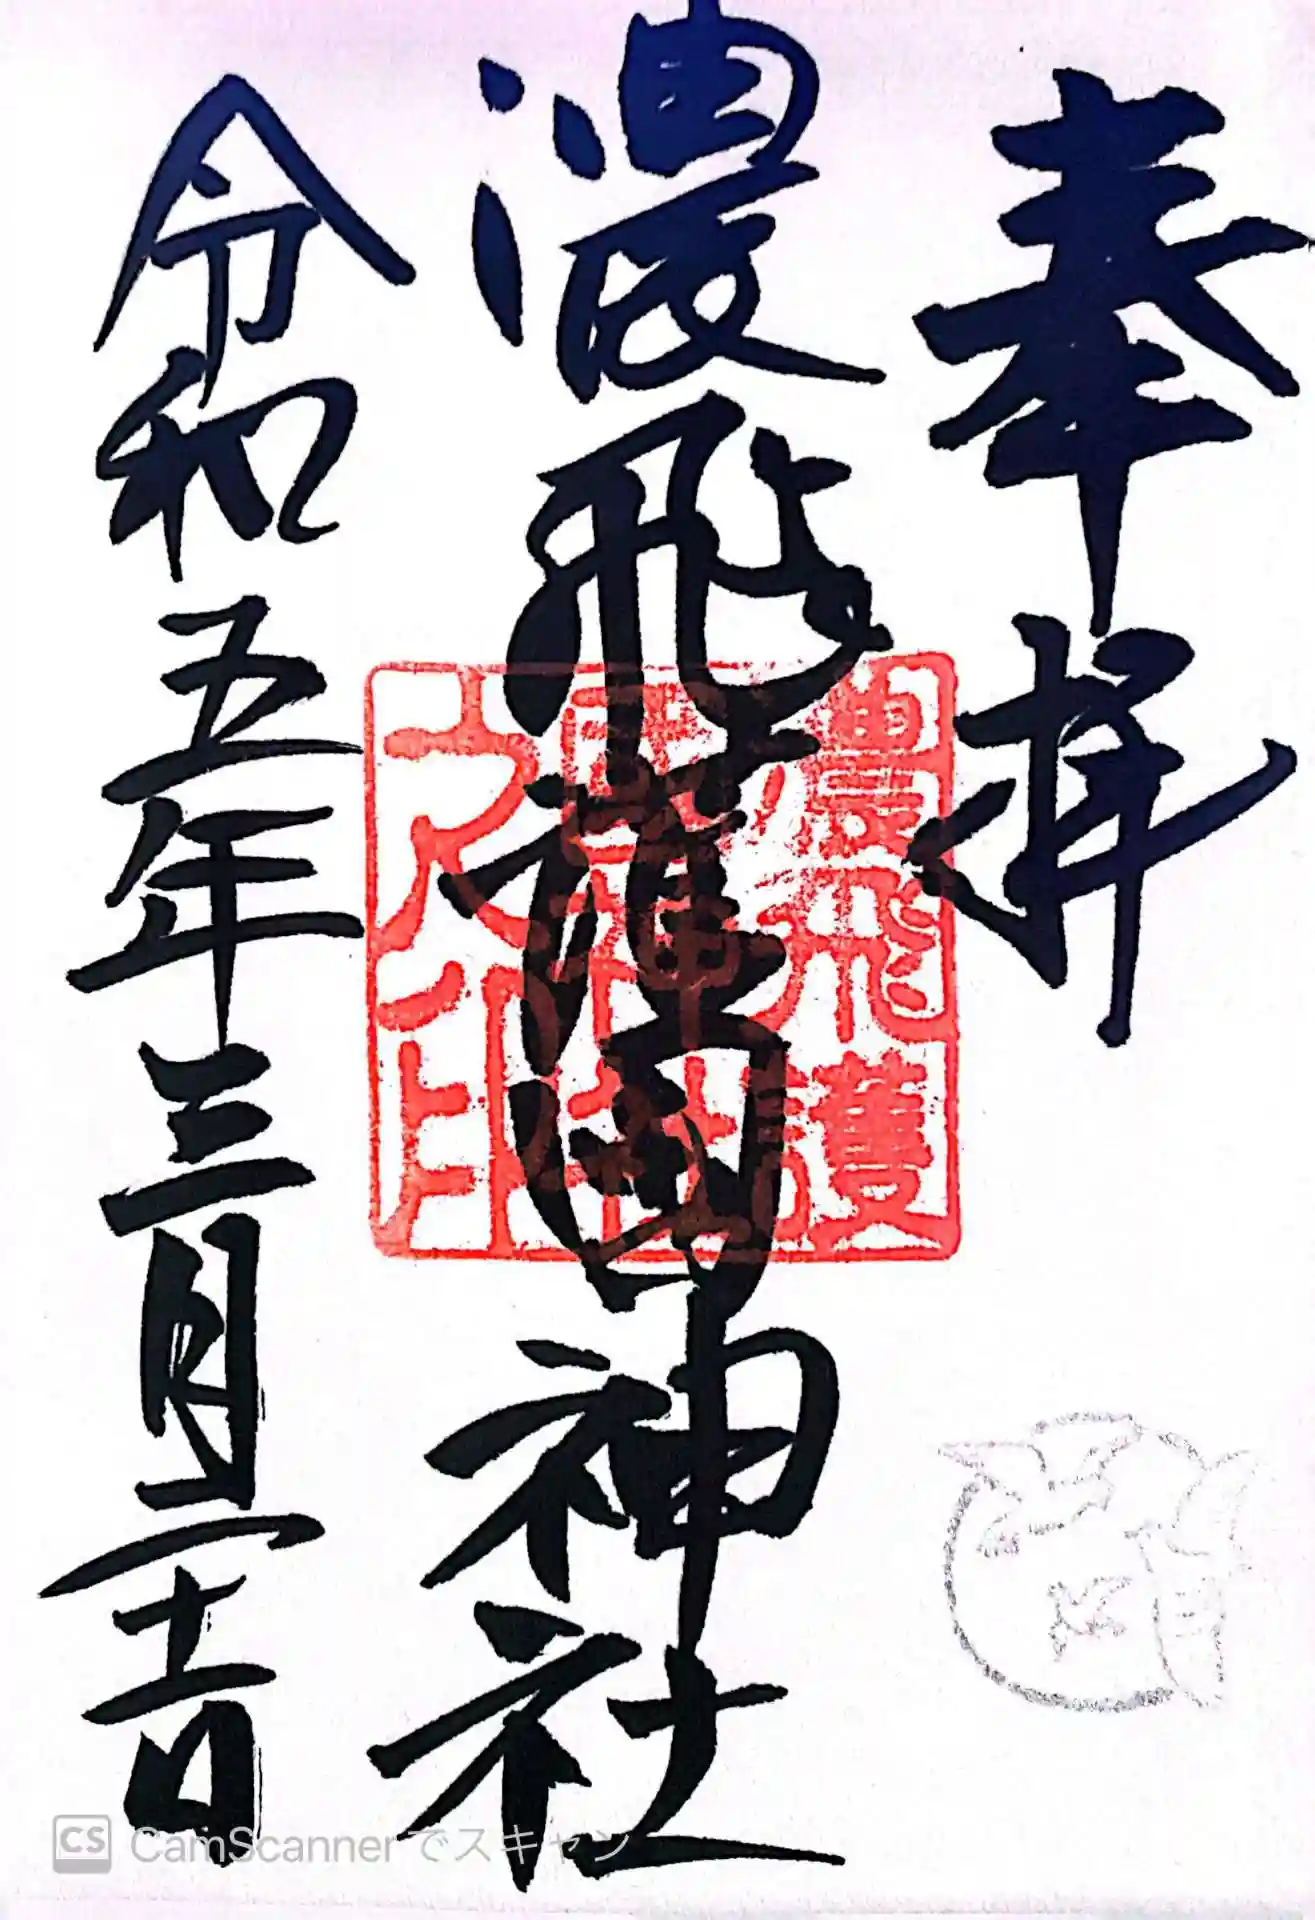 奉拝
濃飛護國神社
令和五年三月二十二日
濃飛護
國神社
之印
CS CamScanner でスキャン